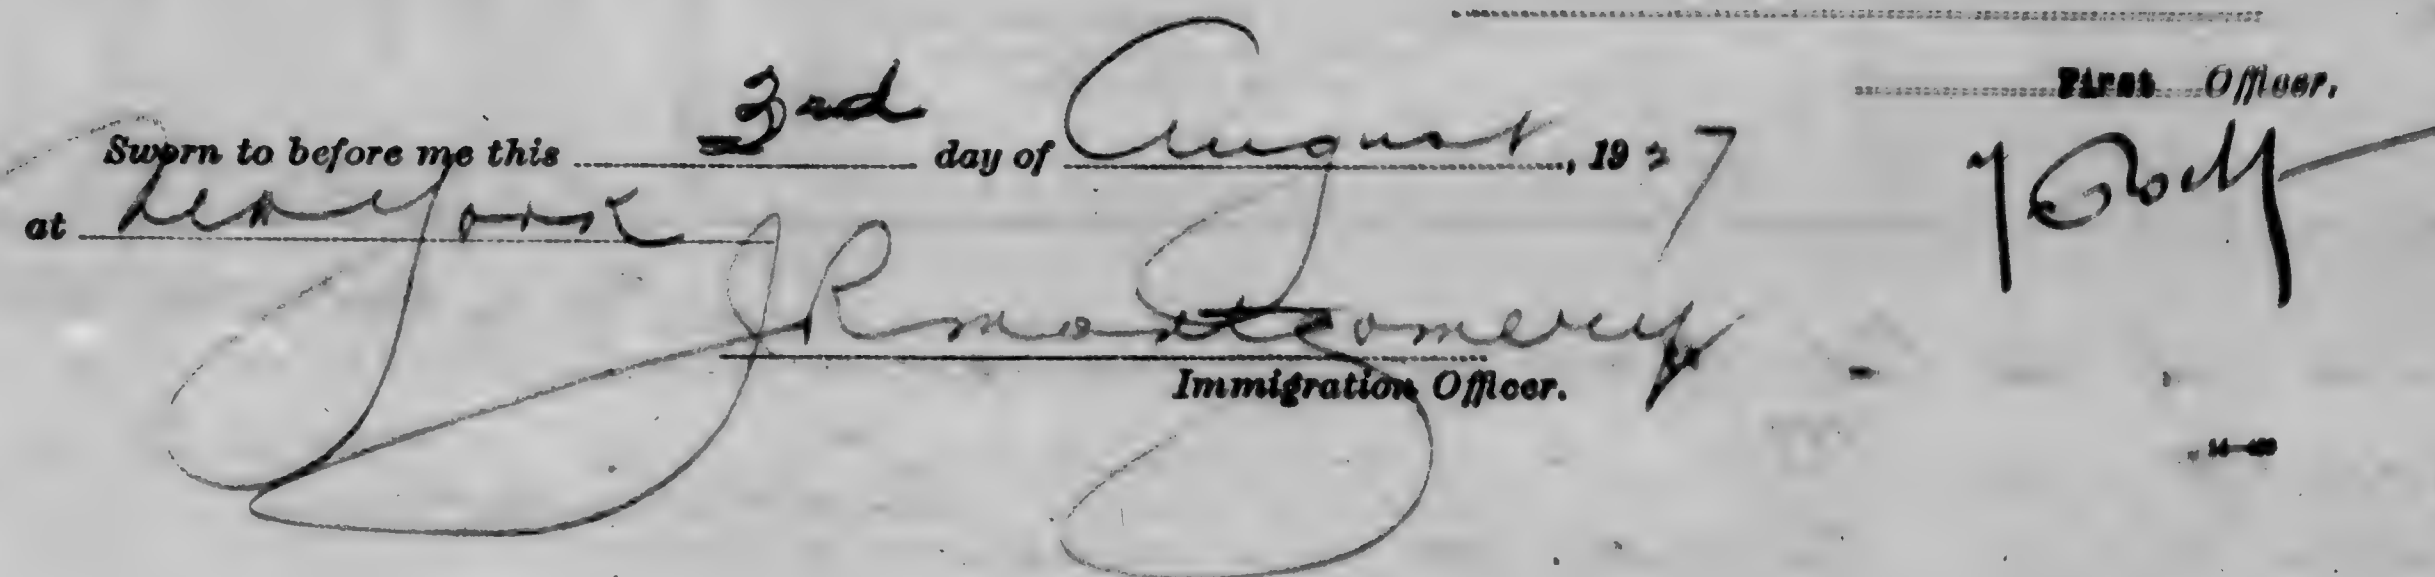 First Officer.
Sworn to before me this 3rd day of August, 1927
at New York
J R Montgomery
Immigration Officer.